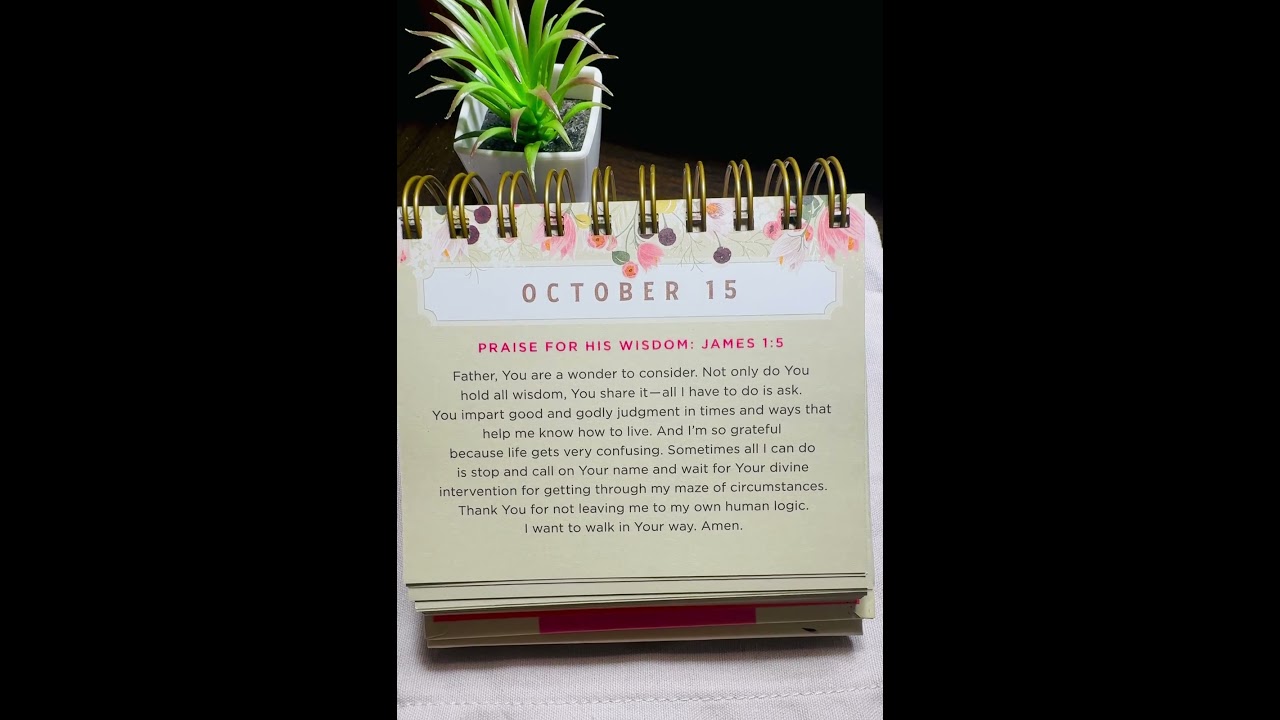 OCTOBER 15
PRAISE FOR HIS WISDOM: JAMES 1:5
Father, You are a wonder to consider. Not only do You
hold all wisdom, You share it—all I have to do is ask.
You impart good and godly judgment in times and ways that
help me know how to live. And I'm so grateful
because life gets very confusing. Sometimes all I can do
is stop and call on Your name and wait for Your divine
intervention for getting through my maze of circumstances.
Thank You for not leaving me to my own human logic.
I want to walk in Your way. Amen.